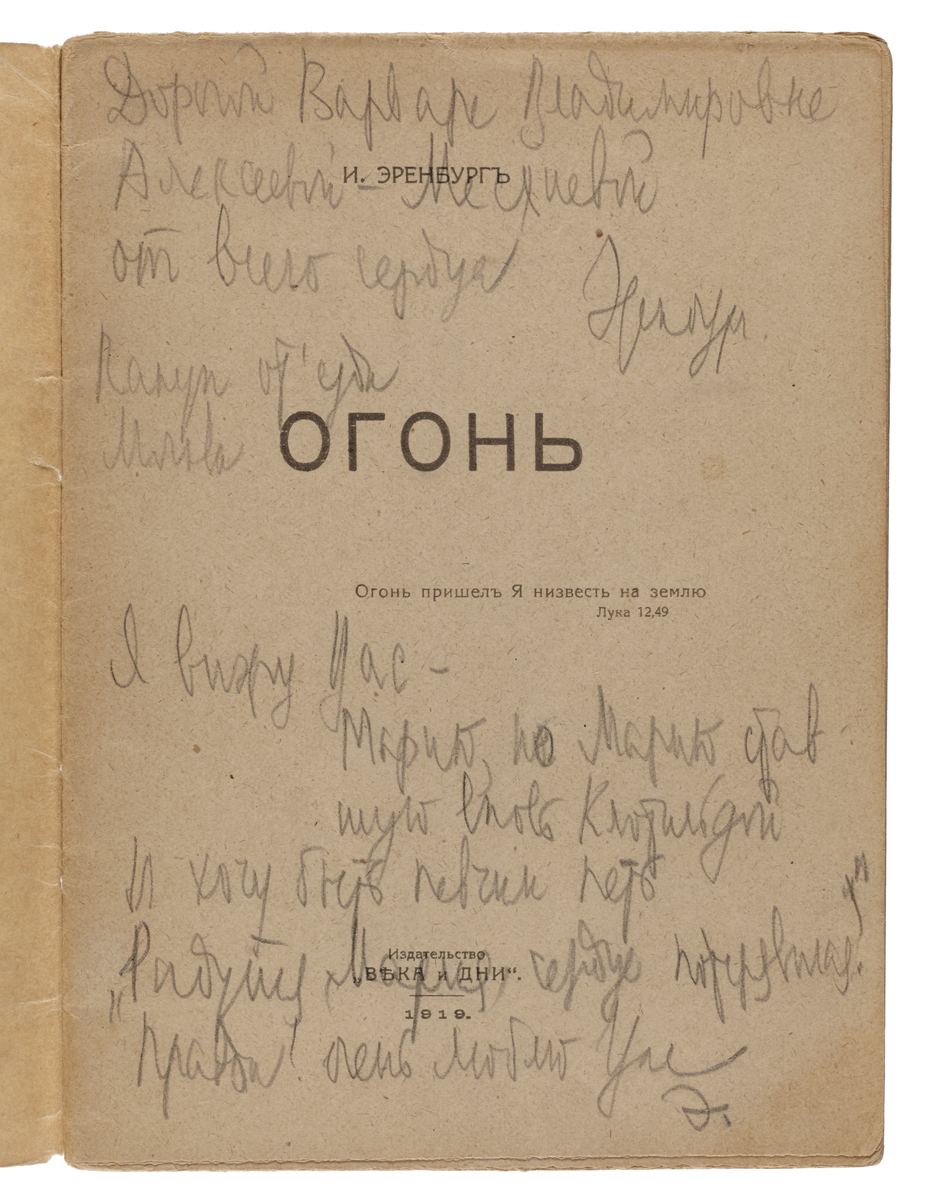 Дорогой Варваре Владимировне
И. ЭРЕНБУРГЪ
Алексеевой - Месхиевой
от всего сердца
Эренбург.
Канун от'езда
ОГОНЬ
Огонь пришелъ Я низвесть на землю
Лука 12,49
Я вижу Вас -
Марию, но Марию став
шую вновь Клотильдой
И хочу быть певчим петь
Издательство
„ВѢКА и ДНИ“.
„Радуйся, Мария, сердце потерявшая!“
1919.
Правда! очень люблю Вас
Э.